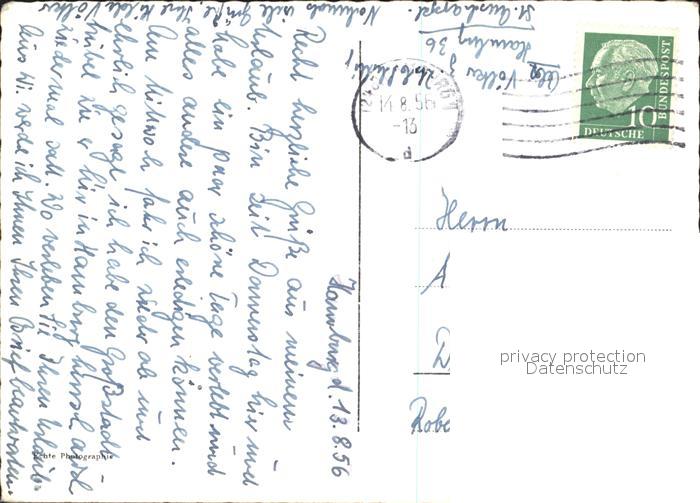 Hamburg d. 13.8.56
Recht herzliche Grüße aus meinem
Urlaub. Bin seit Donnerstag hier und
habe ein paar schöne Tage verlebt und
alles andere auch erledigen können.
Am Mittwoch fahr ich wieder ab und
ehrlich gesagt ich habe den Großstadt-
trubel wie er hier in Hamburg herrscht auch
wieder mal satt. Wo verleben Sie Ihren Urlaub
werde ich Ihnen Ihren Brief beantworten
Nochmals viele Grüße, Ihre Hilde Völker
Abs. Völker
Hamburg 36
14.8.56-13
d
10
DEUTSCHE
BUNDESPOST
Herrn
A
D
Robe
privacy protection
Datenschutz
Echte Photographie